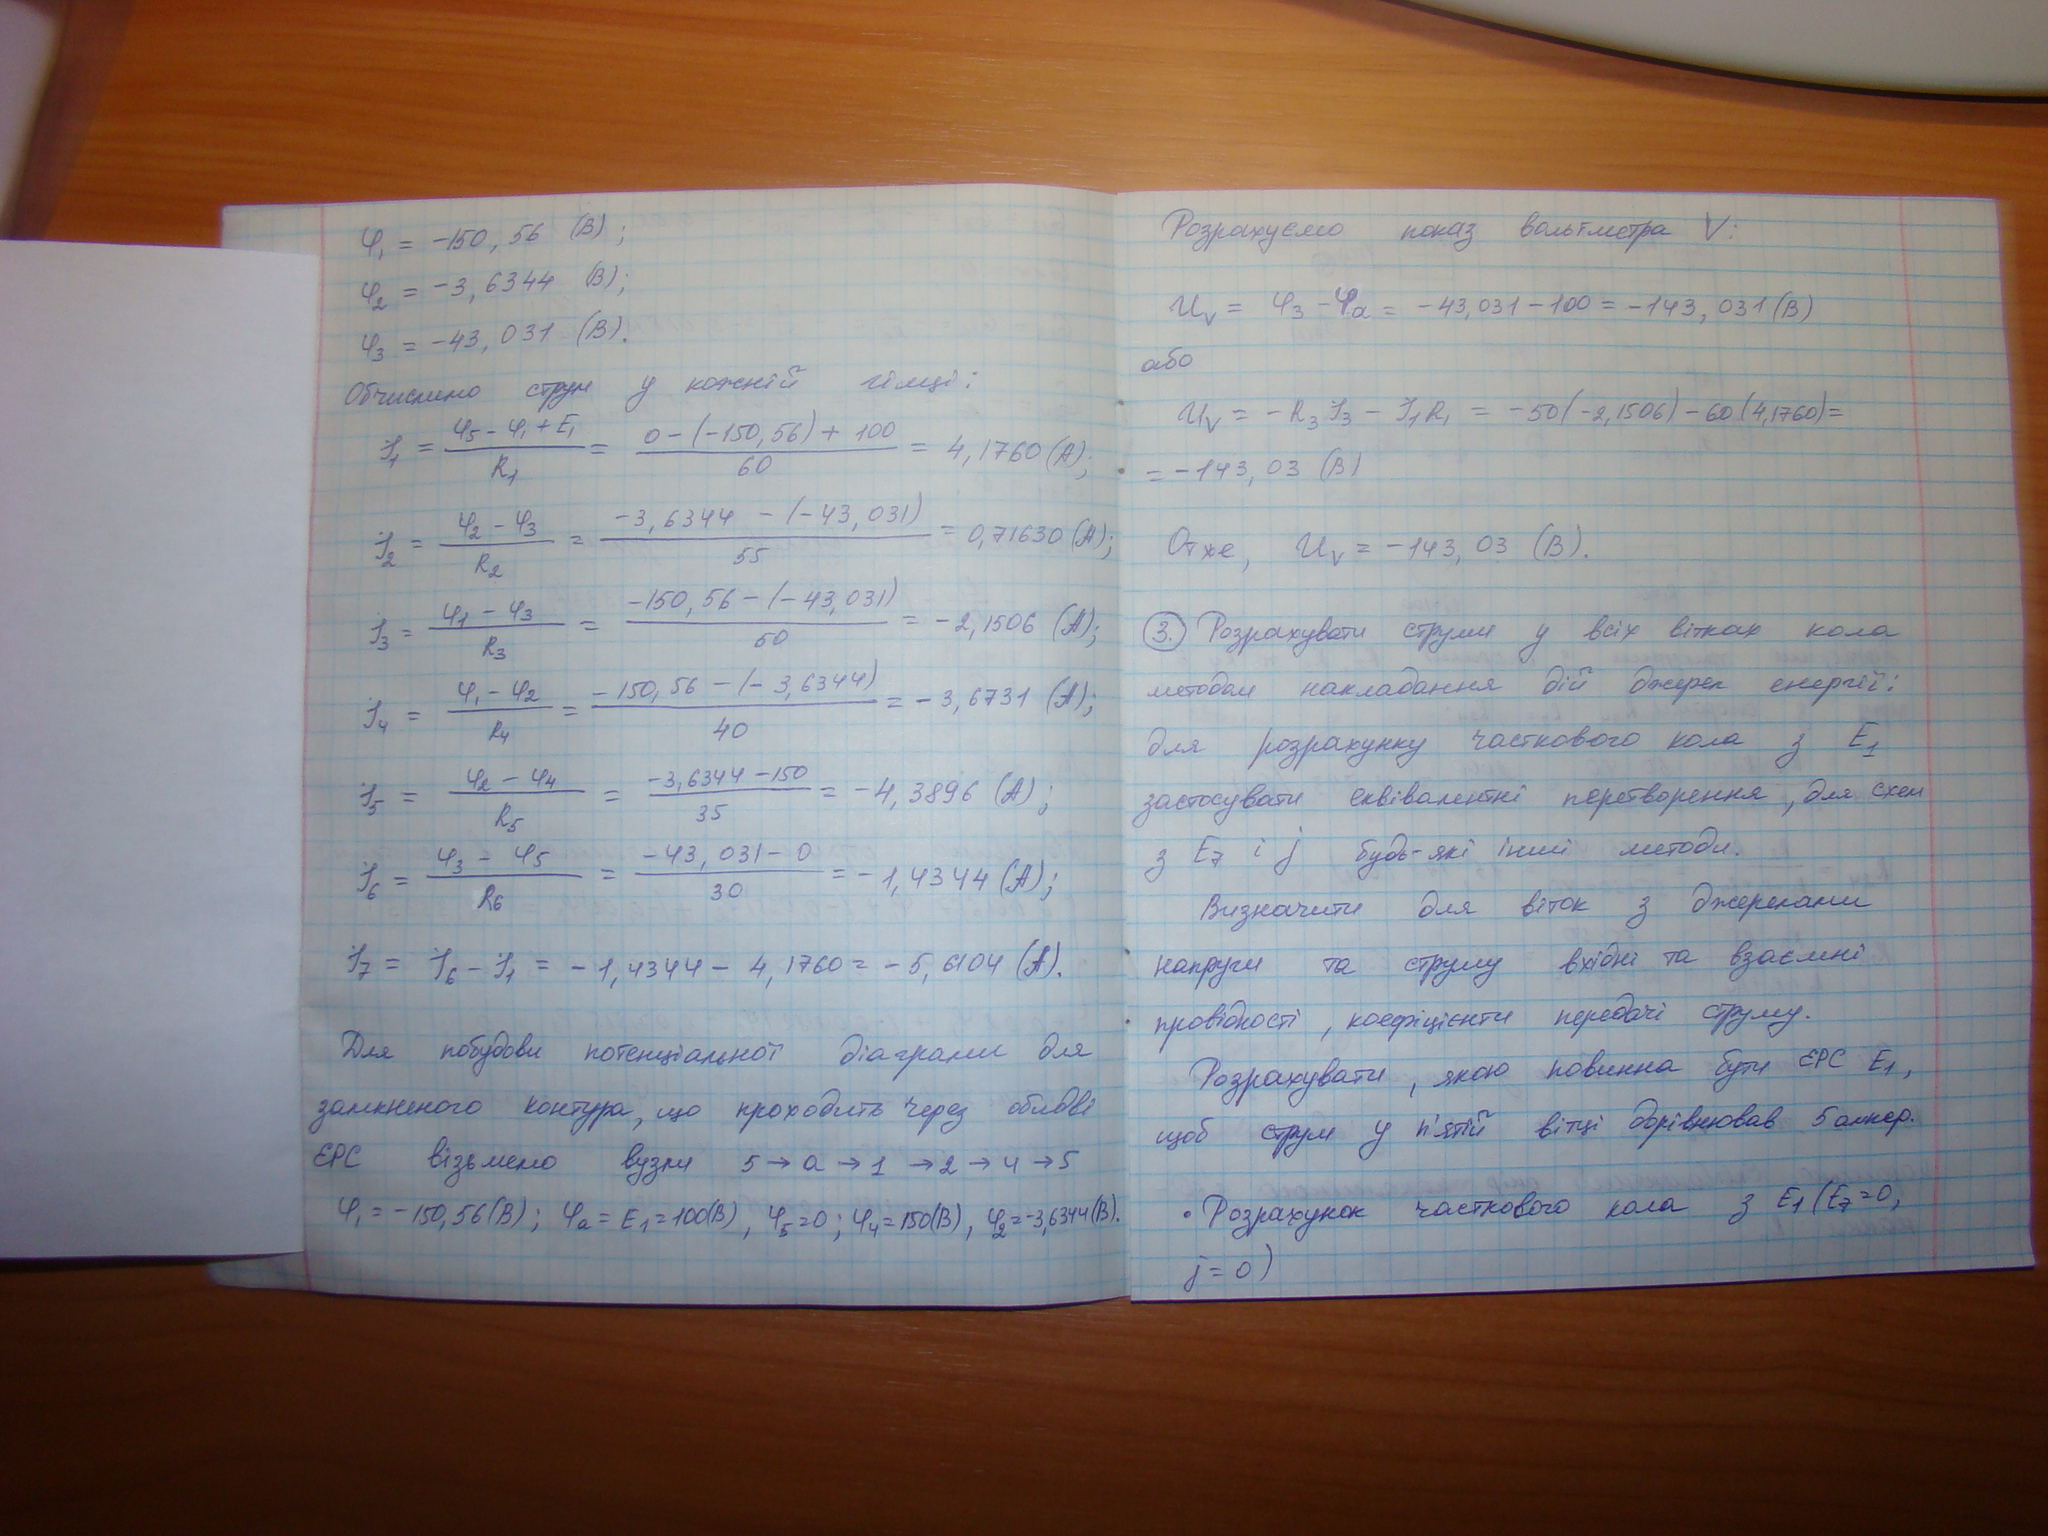 φ₁ = -150,56 (В);
φ₂ = -3,6344 (В);
φ₃ = -43,031 (В).
Обчислимо струм у кожній гілці:
I₁ = (φ₅ - φ₁ + E₁)/R₁ = (0-(-150,56)+100)/60 = 4,1760 (А);
I₂ = (φ₂ - φ₃)/R₂ = (-3,6344 - (-43,031))/55 = 0,71630 (А);
I₃ = (φ₁ - φ₃)/R₃ = (-150,56-(-43,031))/50 = -2,1506 (А);
I₄ = (φ₁ - φ₂)/R₄ = (-150,56-(-3,6344))/40 = -3,6731 (А);
I₅ = (φ₂ - φ₄)/R₅ = (-3,6344-150)/35 = -4,3896 (А);
I₆ = (φ₃ - φ₅)/R₆ = (-43,031-0)/30 = -1,4344 (А);
I₇ = I₆ - I₁ = -1,4344 - 4,1760 = -5,6104 (А).
Для побудови потенціальної діаграми для
замкненого контура, що проходить через обидві
ЕРС візьмемо вузли 5→a→1→2→4→5
φ₁ = -150,56(В); φa = E₁=100(В), φ₅=0; φ₄=150(В), φ₂=-3,6344(В).
Розрахуємо показ вольтметра V:
Uv = φ₃ - φa = -43,031-100 = -143,031(В)
або
Uv = -R₃I₃ - I₁R₁ = -50(-2,1506)-60(4,1760)=
= -143,03 (В)
Отже, Uv = -143,03 (В).
3. Розрахувати струми у всіх вітках кола
методом накладання дій джерел енергії:
для розрахунку часткового кола з E₁
застосувати еквівалентні перетворення, для схем
з E₇ і j будь-які інші методи.
Визначити для віток з джерелами
напруги та струму вхідні та взаємні
провідності, коефіцієнти передачі струму.
Розрахувати, якою повинна бути ЕРС E₁,
щоб струм у п'ятій вітці дорівнював 5 ампер.
• Розрахунок часткового кола з E₁ (E₇=0,
j=0)